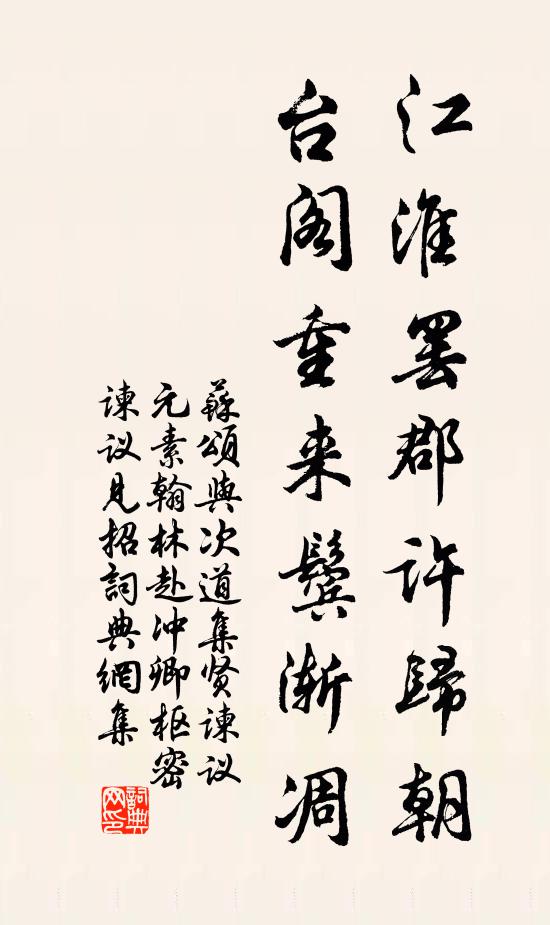 江淮罢郡许歸朝
台阁重来鬓渐凋
蘇頌與次道集贤諫议
元素翰林赴冲卿枢密
諫议見招詞典網集
詞典网印